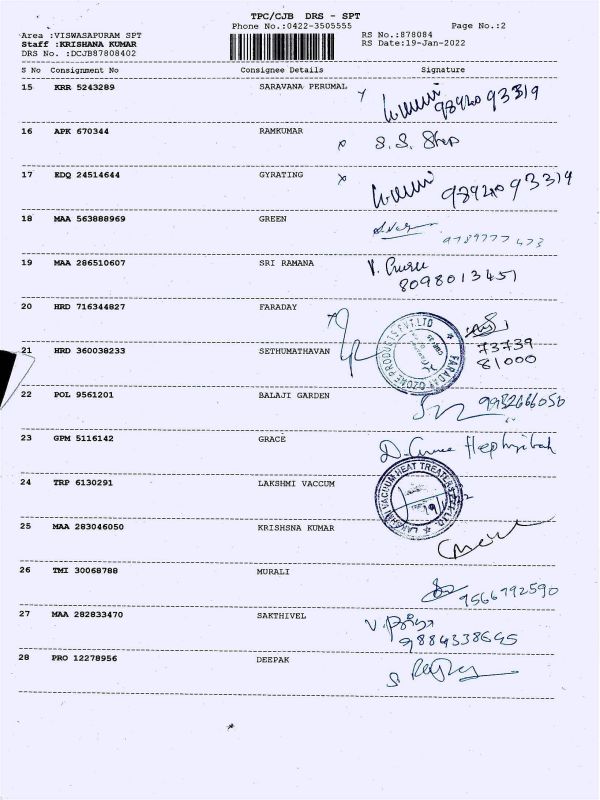 TPC/CJB DRS - SPT
Phone No.:0422-3505555 Page No.:2
Area :VISWASAPURAM SPT RS No.:878084
Staff :KRISHANA KUMAR RS Date:19-Jan-2022
DRS No. :DCJB87808402
S No Consignment No Consignee Details Signature
15 KRR 5243289 SARAVANA PERUMAL
9894093319
16 APK 670344 RAMKUMAR
S.S. Shop
17 EDQ 24514644 GYRATING
9894093319
18 MAA 563888969 GREEN
9789777473
19 MAA 286510607 SRI RAMANA V. Guru
8098013451
20 HRD 716344827 FARADAY
FARADAY OZONE PRODUCTS PVT.LTD
73739
81000
21 HRD 360038233 SETHUMATHAVAN
22 POL 9561201 BALAJI GARDEN
9952666050
23 GPM 5116142 GRACE D. Grace Hephzibah
24 TRP 6130291 LAKSHMI VACCUM
LAKSHMI VACUUM HEAT TREATERS PVT. LTD.
25 MAA 283046050 KRISHSNA KUMAR
26 TMI 30068788 MURALI
9566792590
27 MAA 282833470 SAKTHIVEL V. Priya
9884338645
28 PRO 12278956 DEEPAK